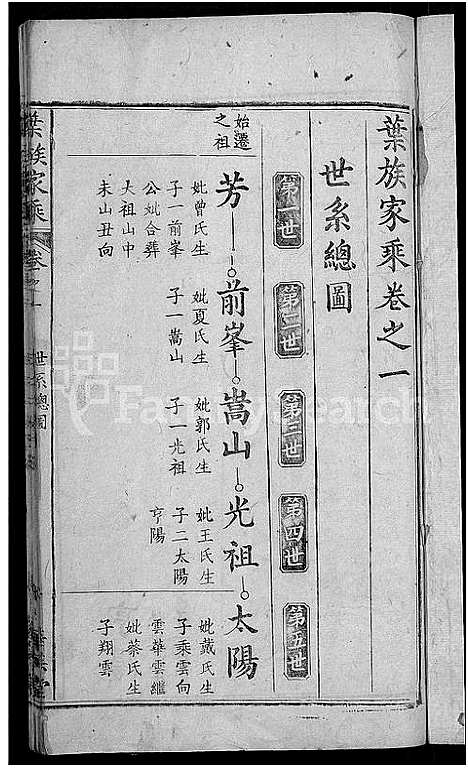 葉族家乘卷之一
世系總圖
第一世
第二世
第三世
第四世
第五世
始遷
之祖
芳
妣曾氏生
子一前峯
公妣合葬
大祖山中
未山丑向
前峯
妣夏氏生
子一嵩山
嵩山
妣郭氏生
子一光祖
光祖
妣王氏生
子二太陽
亨陽
太陽
妣戴氏生
子乘雲向
雲華雲繼
妣蔡氏生
子翔雲
葉族家乘
卷之一
世系總圖
FamilySearch